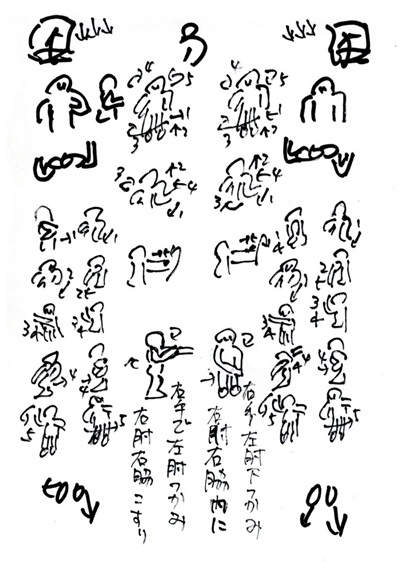 右手左肘下つかみ
右肘右脇内に
右手で左肘つかみ
右肘右脇こすり